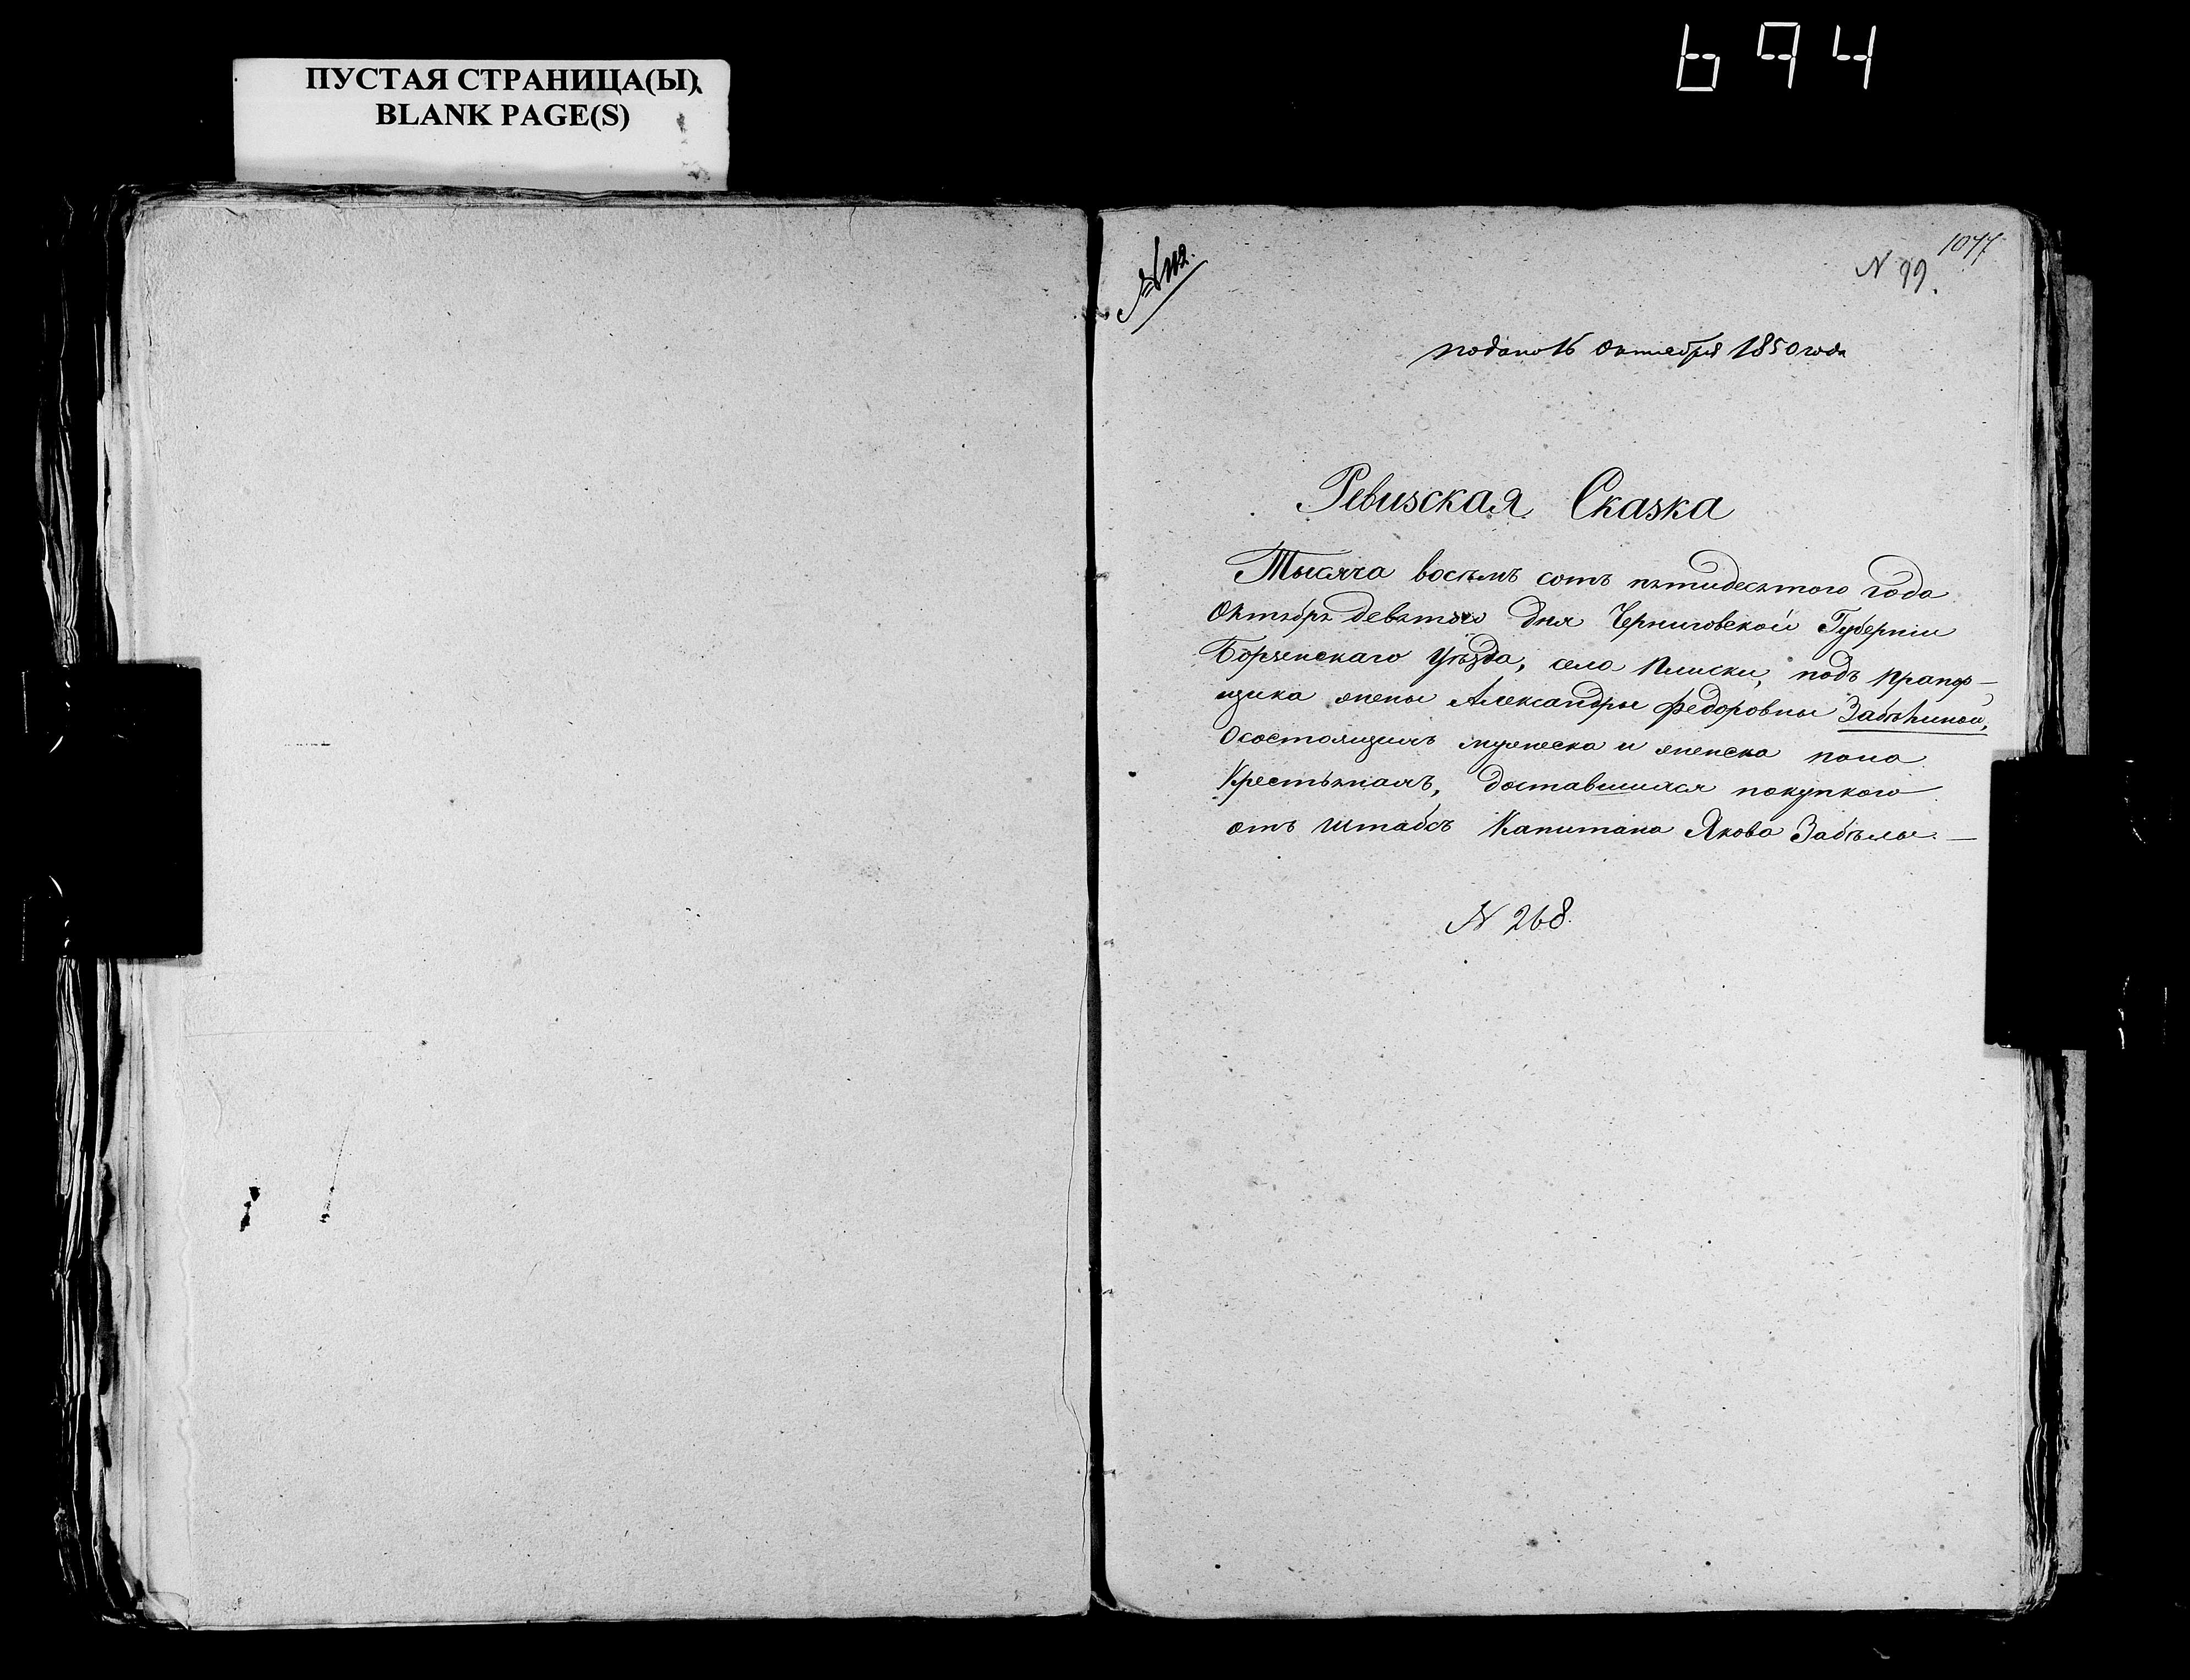 694
ПУСТАЯ СТРАНИЦА(Ы)
BLANK PAGE(S)
1077
N 99.
подано 16 октября 1850 года
Ревизская Сказка
Тысяча восемъ сотъ пятидесятого года
Октября девятого дня Черниговской Губерніи
Борзенскаго Уѣзда, села Плиски, подъ прапор-
щика жены Александры Федоровны Забѣлиной,
О состоящихъ мужеска и женска пола
Крестьянахъ, доставшихся покупкою
отъ Штабсъ Капитана Якова Забѣлы. —
N 268.